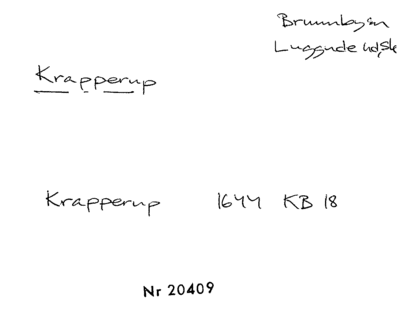 Brunnbysn
Luggude hd, Sk
Krapperup
Krapperup 1644 KB 18
Nr 20409